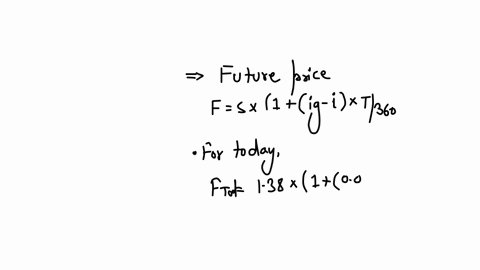 ⇒ Future price
F = S × (1 + (ig - i) × T/360
• For today,
F = 1.38 × (1 + (0.0